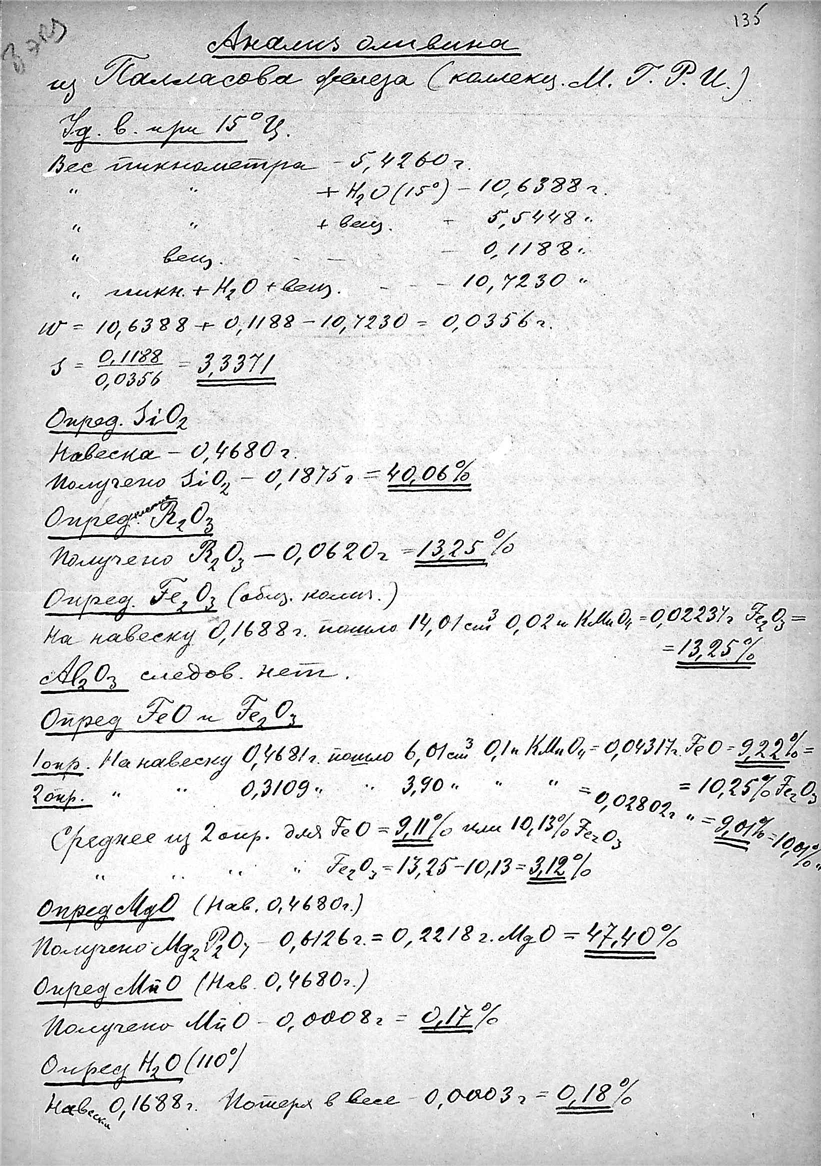 135
8 экз
Анализ оливина
из Палласова железа (коллекц. М. Г. Р. И.)
Уд. в. при 15°Ц.
Вес пикнометра – 5,4260 г.
" " + H2O (15°) – 10,6388 г.
" " + вещ. – 5,5448 "
" вещ. – – – 0,1188 "
" пикн. + H2O + вещ. – – – 10,7230 "
W = 10,6388 + 0,1188 – 10,7230 = 0,0356 г.
S = 0,1188/0,0356 = 3,3371
Опред. SiO2
Навеска – 0,4680 г.
Получено SiO2 – 0,1875 г = 40,06%
Определение R2O3
Получено R2O3 – 0,0620 г = 13,25%
Опред. Fe2O3 (общ. колич.)
На навеску 0,1688 г. пошло 14,01 cm3 0,02 н KMnO4 = 0,02237 г Fe2O3 =
= 13,25%
Al2O3 следов. нет.
Опред FeO и Fe2O3
1 опр. На навеску 0,4681 г. пошло 6,01 cm3 0,1 н KMnO4 = 0,04317 г. FeO = 9,22% =
= 10,25% Fe2O3
2 опр. " " 0,3109 " " 3,90 " " " = 0,02802 г " = 9,01% = 10,01% "
Среднее из 2 опр. для FeO = 9,11% или 10,13% Fe2O3
" " " " " Fe2O3 = 13,25 – 10,13 = 3,12%
Опред MgO (Нав. 0,4680 г.)
Получено Mg2P2O7 – 0,6126 г. = 0,2218 г. MgO = 47,40%
Опред MnO (Нав. 0,4680 г.)
Получено MnO – 0,0008 г = 0,17%
Опред H2O (110°)
Навеска 0,1688 г. Потеря в весе – 0,0003 г = 0,18%